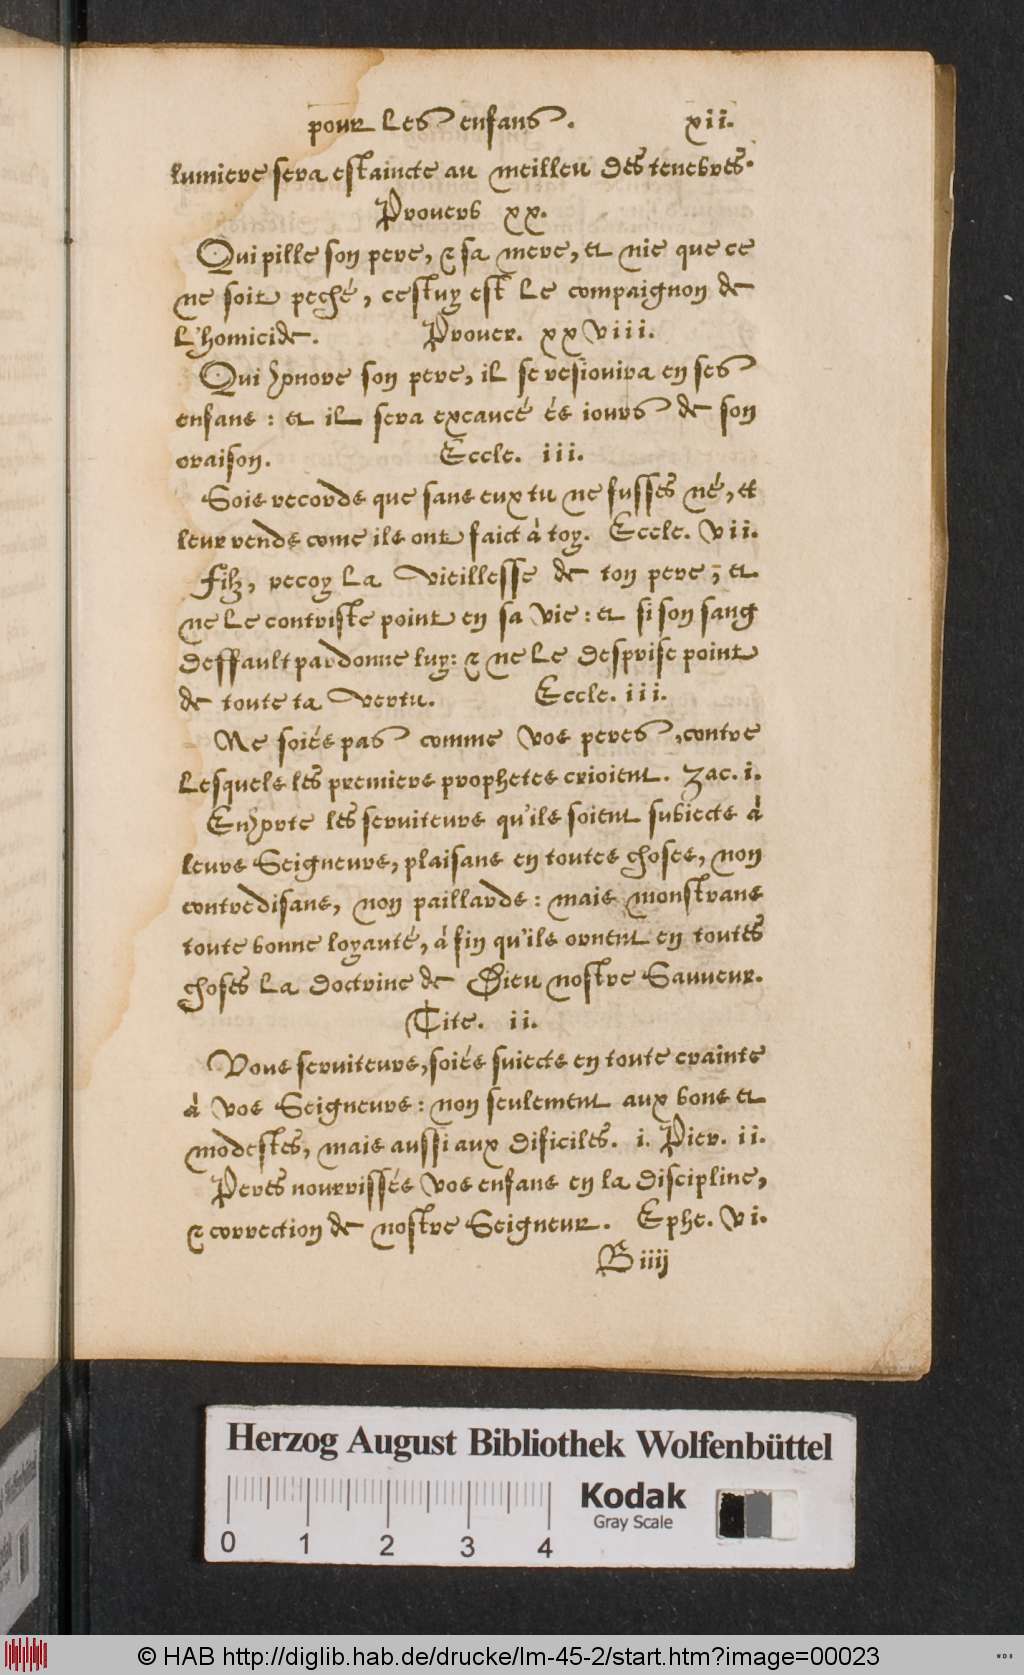 pour les enfans. xii.
lumiere sera estaincte au meilleu des tenebres.
Prouerb xx.
Qui pille son pere, & sa mere, et nie que ce
ne soit peché, cestuy est le compaignon de
l'homicide. Prouer. xxviii.
Qui hõnore son pere, il se resiouira en ses
enfans : et il sera exaucé és iours de son
oraison. Eccle. iii.
Sois recorde que sans eux tu ne fusses né, et
leur rends come ils ont faict à toy. Eccle. vii.
Filz, recoy la vieillesse de ton pere, et
ne le contriste point en sa vie : et si son sang
deffault pardonne luy: & ne le desprise point
de toute ta vertu. Eccle. iii.
Ne soiés pas comme vos peres, contre
lesquels les premiers prophetes crioient. Zac. i.
Enhorte les seruiteurs qu'ils soient subiects à
leurs Seigneurs, plaisans en toutes choses, non
contredisans, non paillards : mais monstrans
toute bonne loyauté, à fin qu'ils ornent en toutes
choses la doctrine de Dieu nostre Sauueur.
Tite. ii.
Vous seruiteurs, soiés suiects en toute crainte
à vos Seigneurs : non seulement aux bons et
modestes, mais aussi aux dificiles. i. Pier. ii.
Peres nourrissés vos enfans en la discipline,
& correction de nostre Seigneur. Ephe. vi.
B iiij
Herzog August Bibliothek Wolfenbüttel
0 1 2 3 4
Kodak
Gray Scale
© HAB http://diglib.hab.de/drucke/lm-45-2/start.htm?image=00023